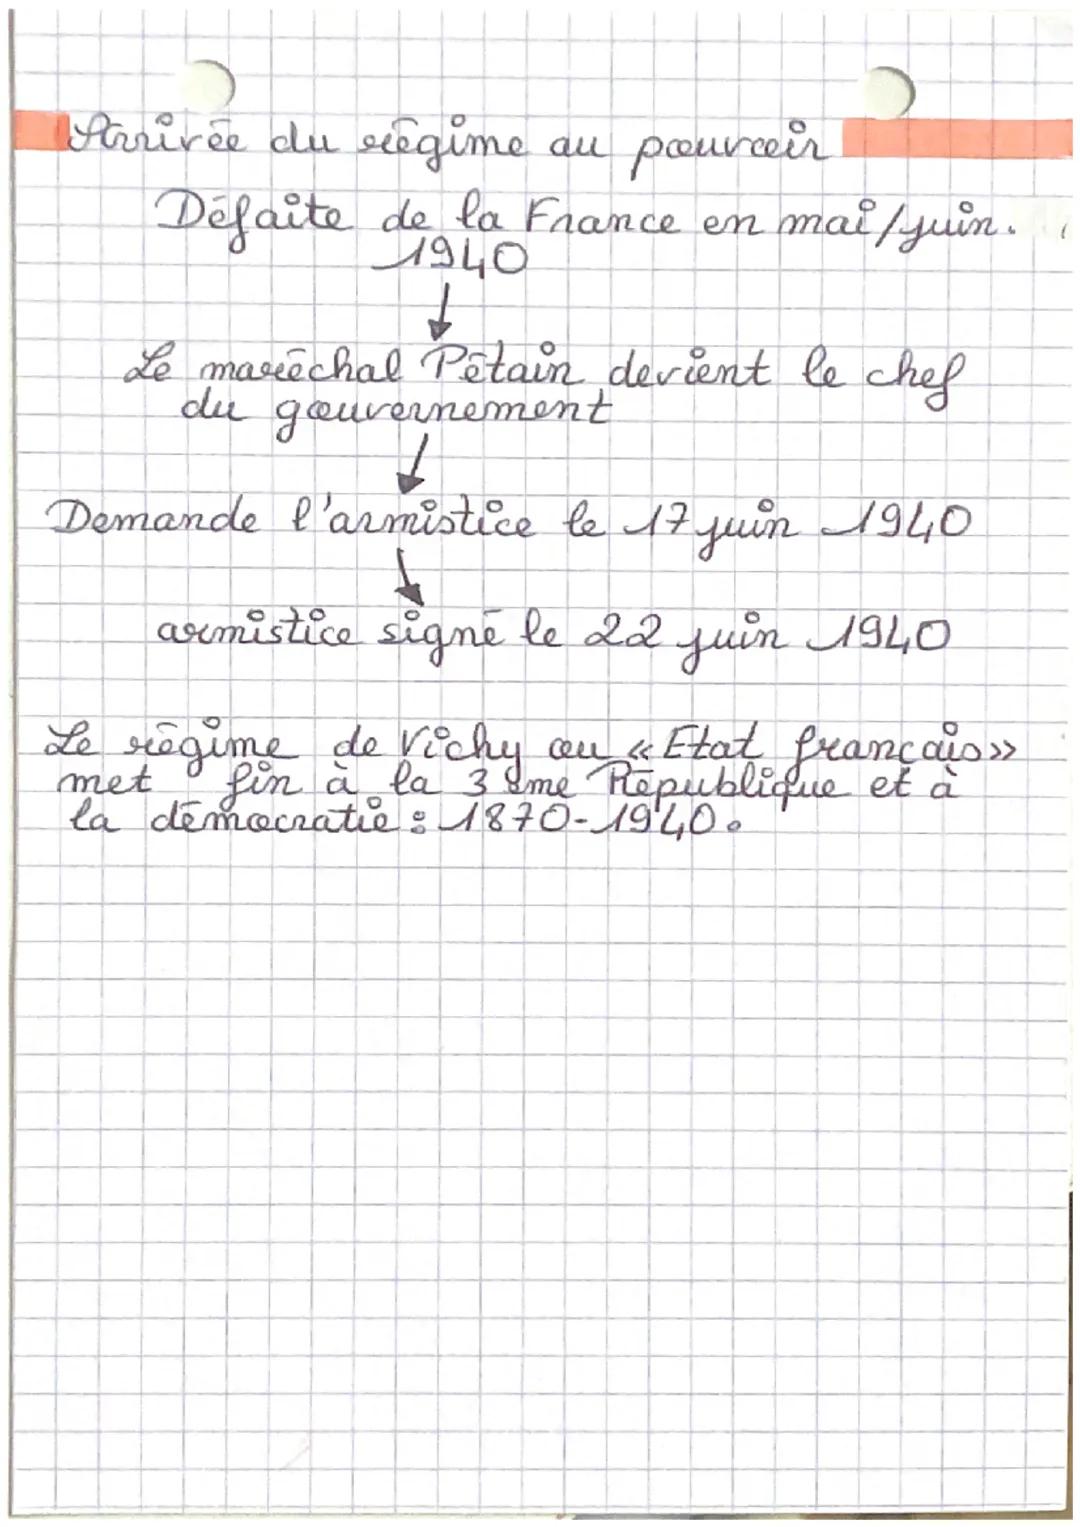 Arrivée du régime au pouvoir
Défaite de la France en mai/juin.
1940
↓
Le maréchal Pétain devient le chef
du gouvernement
↓
Demande l'armistice le 17 juin 1940
↓
armistice signé le 22 juin 1940
Le régime de Vichy ou « Etat français »
met fin à la 3 ème République et à
la démocratie : 1870-1940.